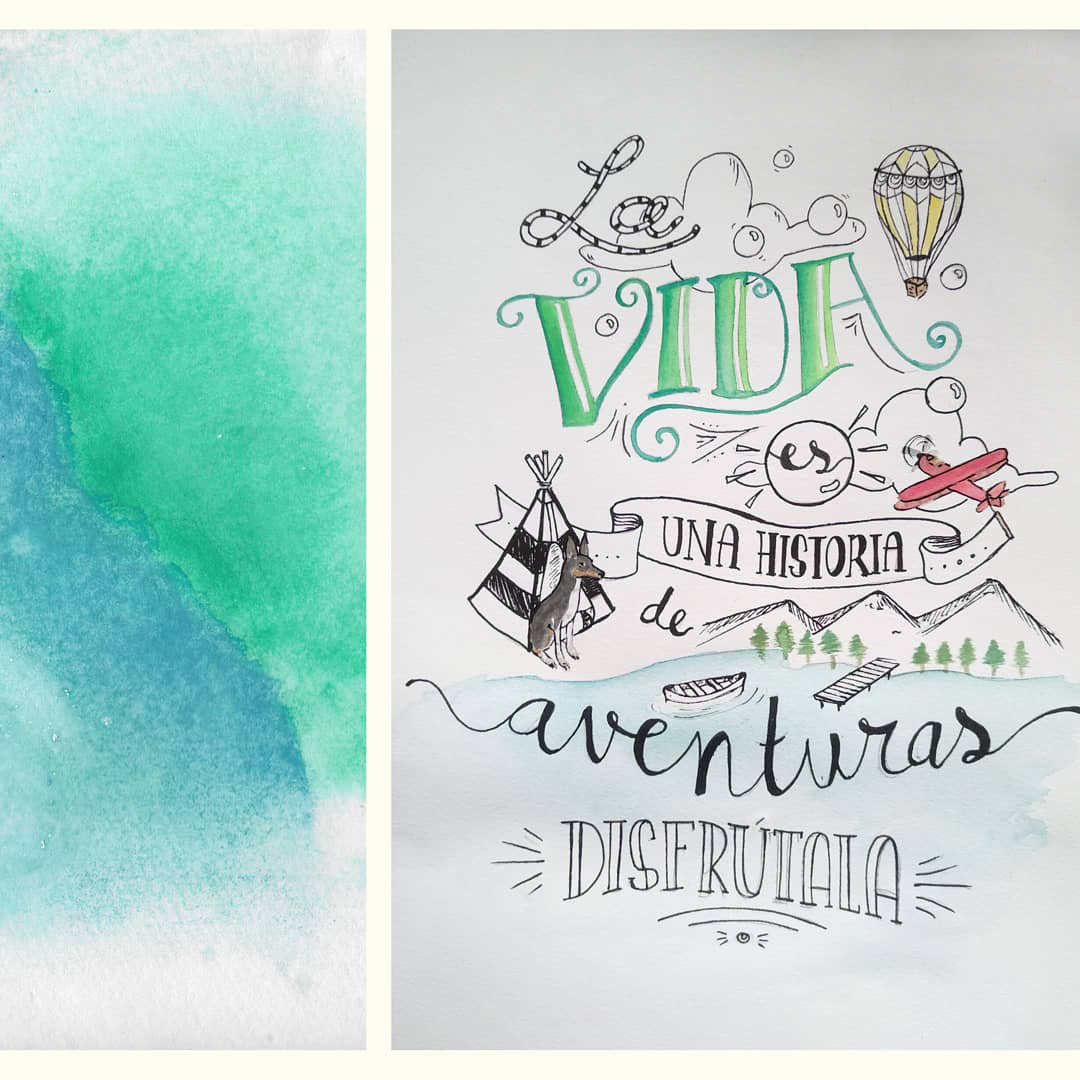 La
VIDA
es
UNA HISTORIA
de
aventuras
DISFRÚTALA